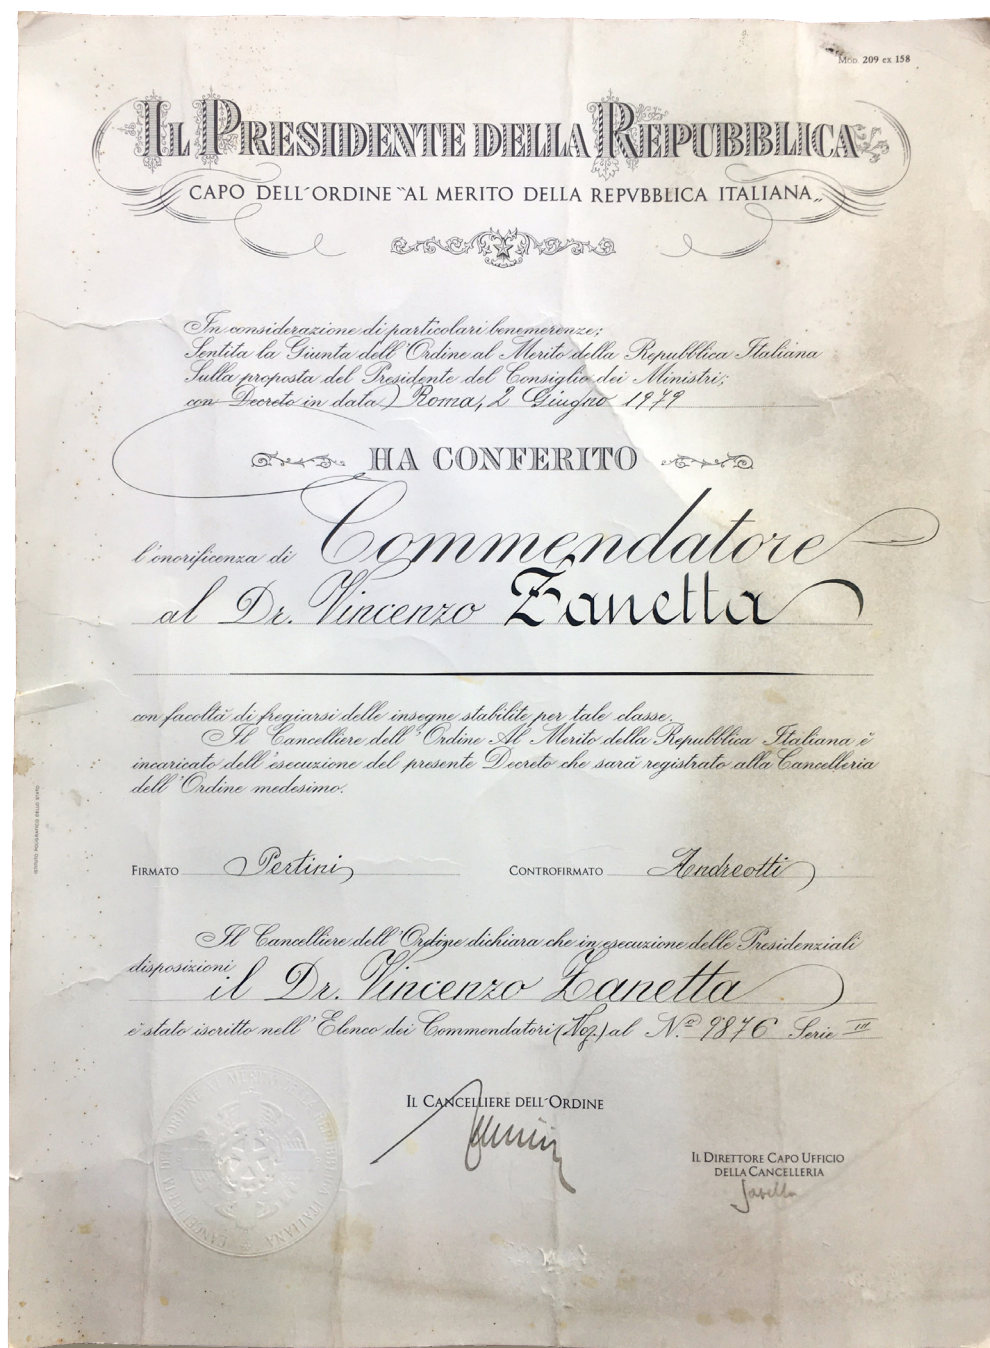 Mod. 209 ex 158
IL PRESIDENTE DELLA REPUBBLICA
CAPO DELL'ORDINE "AL MERITO DELLA REPVBBLICA ITALIANA„
In considerazione di particolari benemerenze;
Sentita la Giunta dell'Ordine al Merito della Repubblica Italiana
Sulla proposta del Presidente del Consiglio dei Ministri;
con Decreto in data Roma, 2 Giugno 1979
HA CONFERITO
l'onorificenza di Commendatore
al Dr. Vincenzo Zanetta
con facoltà di fregiarsi delle insegne stabilite per tale classe.
Il Cancelliere dell'Ordine Al Merito della Repubblica Italiana è
incaricato dell'esecuzione del presente Decreto che sarà registrato alla Cancelleria
dell'Ordine medesimo.
ISTITUTO POLIGRAFICO DELLO STATO
FIRMATO Pertini CONTROFIRMATO Andreotti
Il Cancelliere dell'Ordine dichiara che in esecuzione delle Presidenziali
disposizioni il Dr. Vincenzo Zanetta
è stato iscritto nell'Elenco dei Commendatori (Naz.) al N.º 9876 Serie III
IL CANCELLIERE DELL'ORDINE
IL DIRETTORE CAPO UFFICIO
DELLA CANCELLERIA
CANCELLERIA DELL'ORDINE AL MERITO DELLA REPUBBLICA ITALIANA